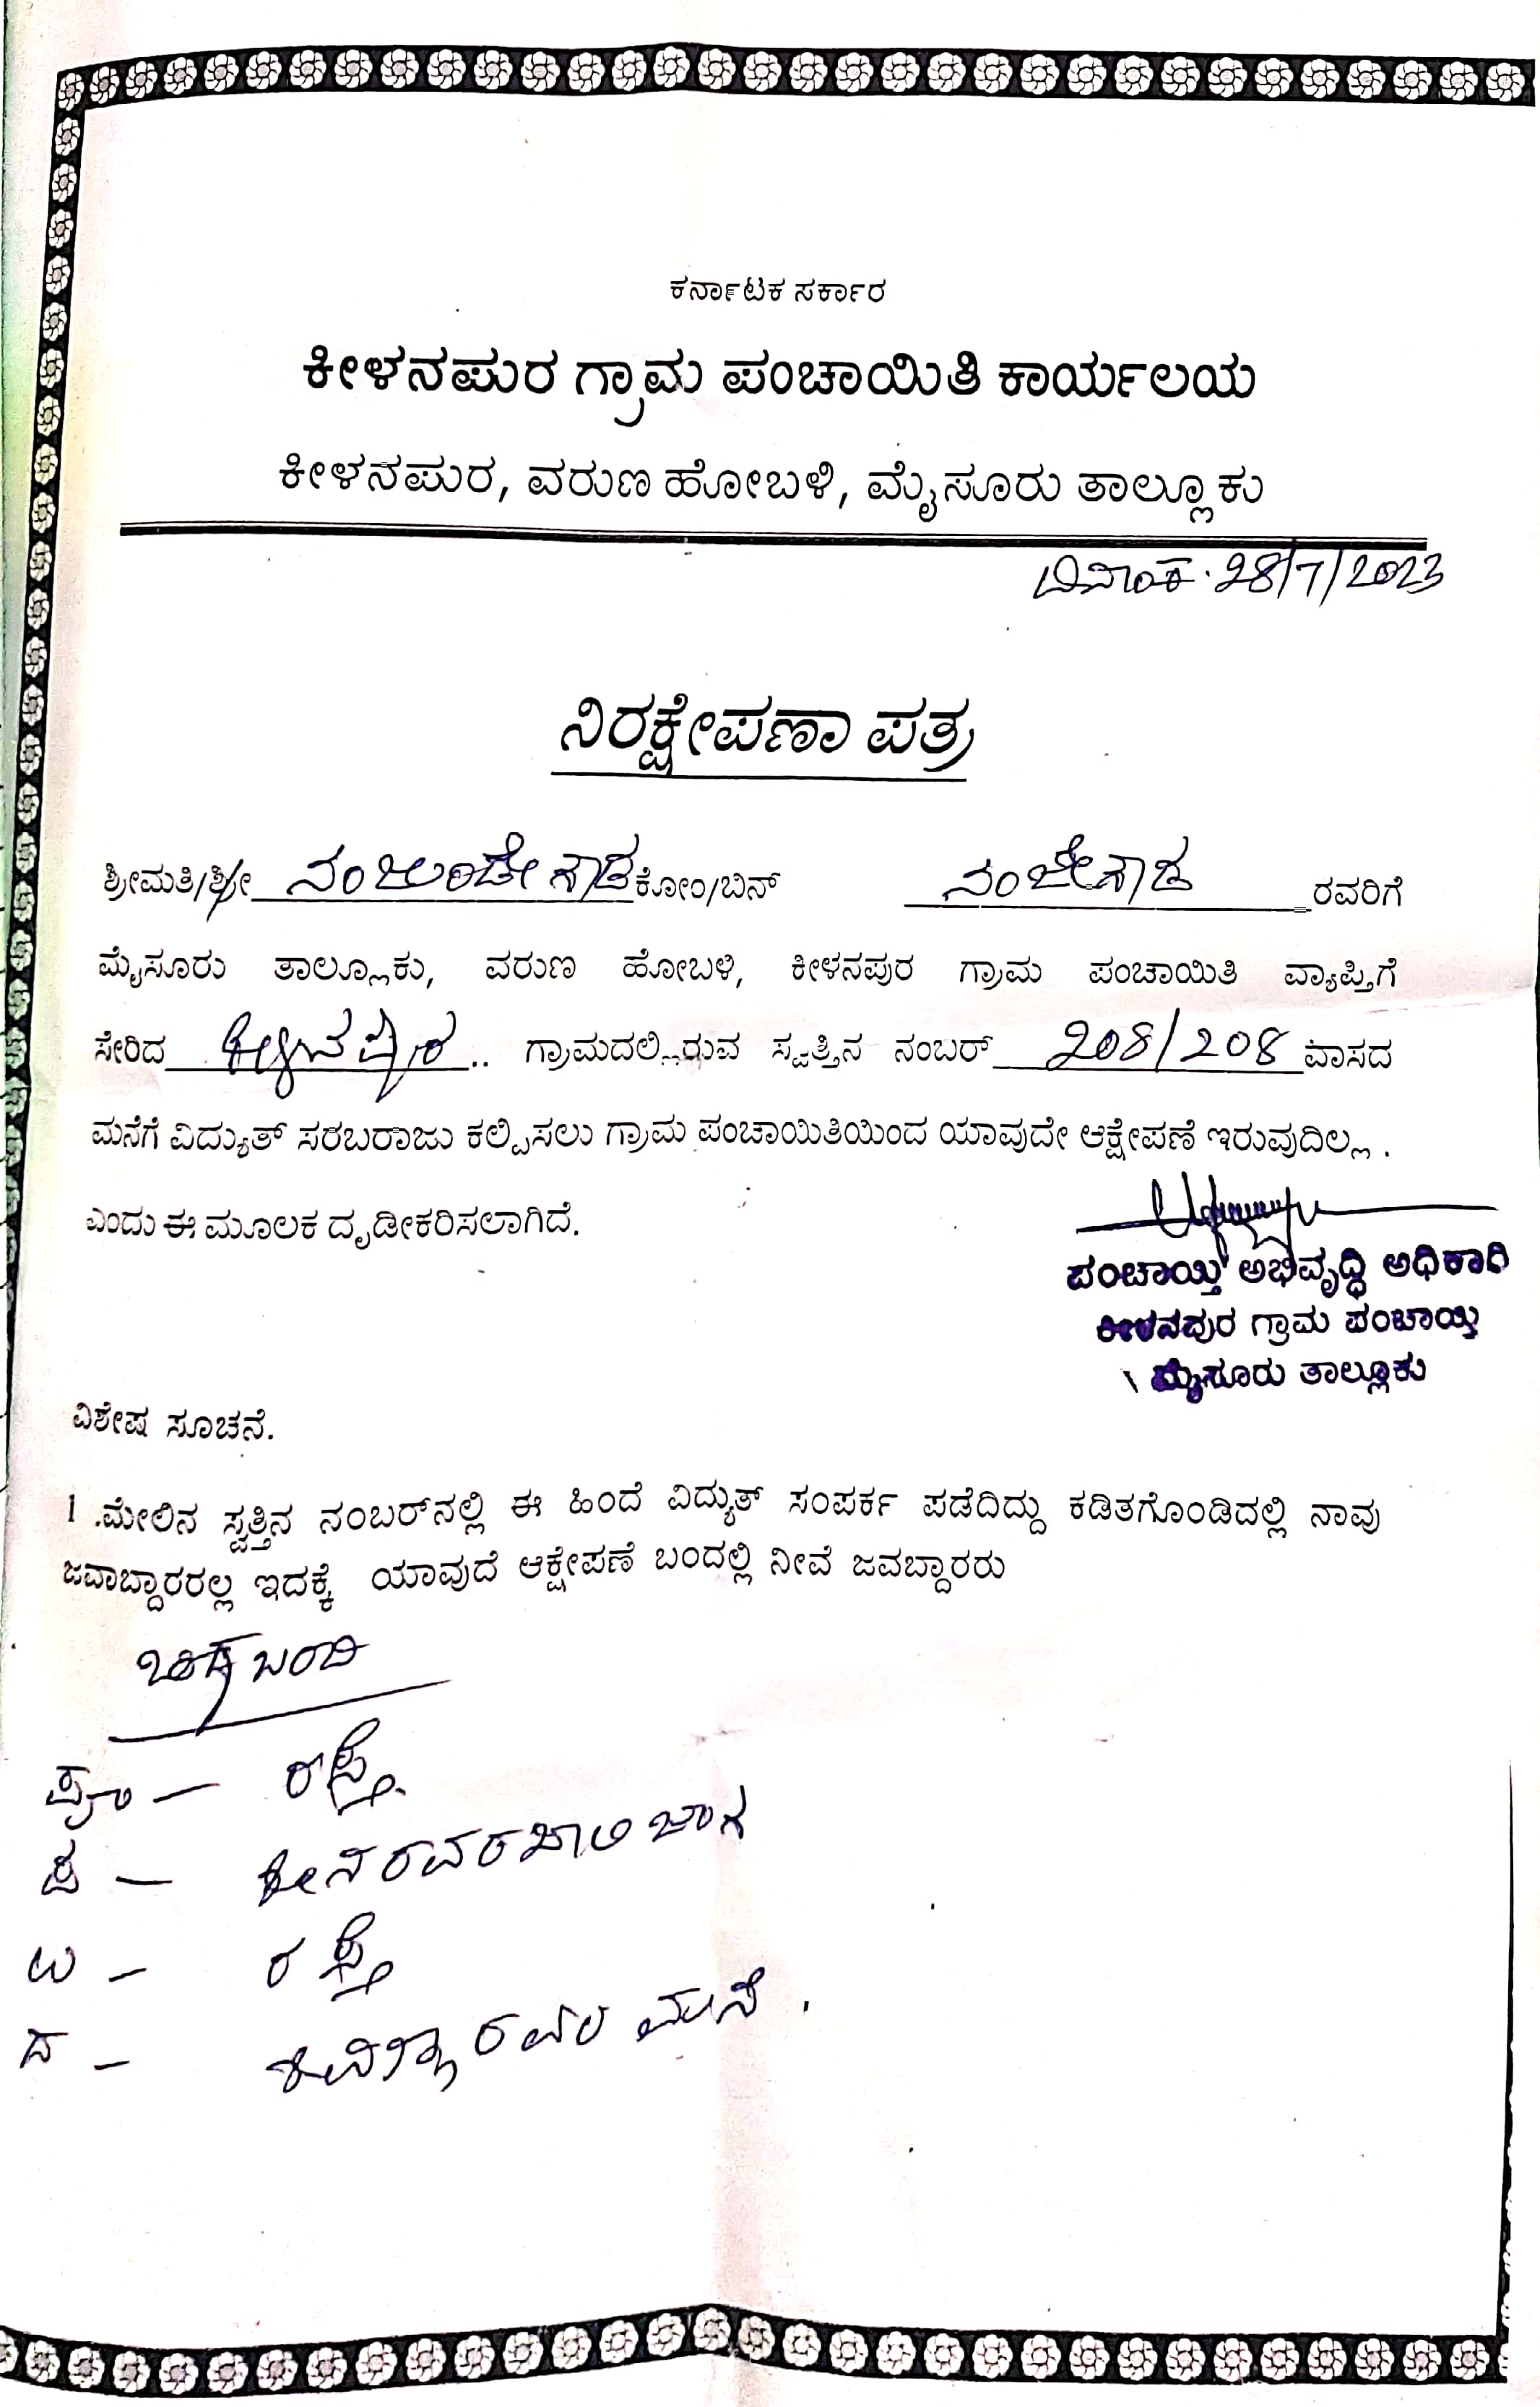 ಕರ್ನಾಟಕ ಸರ್ಕಾರ
ಕೀಳನಪುರ ಗ್ರಾಮ ಪಂಚಾಯಿತಿ ಕಾರ್ಯಲಯ
ಕೀಳನಪುರ, ವರುಣ ಹೋಬಳಿ, ಮೈಸೂರು ತಾಲ್ಲೂಕು
ದಿನಾಂಕ. 28/7/2023
ನಿರಕ್ಷೇಪಣಾ ಪತ್ರ
ಶ್ರೀಮತಿ/ಶ್ರೀ ನಂಜುಂಡೇಗೌಡ ಕೋಂ/ಬಿನ್ ನಂಜೇಗೌಡ ರವರಿಗೆ
ಮೈಸೂರು ತಾಲ್ಲೂಕು, ವರುಣ ಹೋಬಳಿ, ಕೀಳನಪುರ ಗ್ರಾಮ ಪಂಚಾಯಿತಿ ವ್ಯಾಪ್ತಿಗೆ
ಸೇರಿದ ಕೀಳನಪುರ .. ಗ್ರಾಮದಲ್ಲಿರುವ ಸ್ವತ್ತಿನ ನಂಬರ್ 208/208 ವಾಸದ
ಮನೆಗೆ ವಿದ್ಯುತ್ ಸರಬರಾಜು ಕಲ್ಪಿಸಲು ಗ್ರಾಮ ಪಂಚಾಯಿತಿಯಿಂದ ಯಾವುದೇ ಆಕ್ಷೇಪಣೆ ಇರುವುದಿಲ್ಲ .
ಎಂದು ಈ ಮೂಲಕ ದೃಡೀಕರಿಸಲಾಗಿದೆ.
ಪಂಚಾಯ್ತಿ ಅಭಿವೃದ್ಧಿ ಅಧಿಕಾರಿ
ಕೀಳನಪುರ ಗ್ರಾಮ ಪಂಚಾಯ್ತಿ
ಮೈಸೂರು ತಾಲ್ಲೂಕು
ವಿಶೇಷ ಸೂಚನೆ.
1 .ಮೇಲಿನ ಸ್ವತ್ತಿನ ನಂಬರ್‌ನಲ್ಲಿ ಈ ಹಿಂದೆ ವಿದ್ಯುತ್ ಸಂಪರ್ಕ ಪಡೆದಿದ್ದು ಕಡಿತಗೊಂಡಿದಲ್ಲಿ ನಾವು
ಜವಾಬ್ದಾರರಲ್ಲ ಇದಕ್ಕೆ ಯಾವುದೆ ಆಕ್ಷೇಪಣೆ ಬಂದಲ್ಲಿ ನೀವೆ ಜವಬ್ದಾರರು
ಚಕ್ಕಬಂದಿ
ಪೂ — ರಸ್ತೆ
ಪ — ರವರ ಖಾಲಿ ಜಾಗ
ಉ — ರಸ್ತೆ
ದ — ರವರ ಮನೆ .